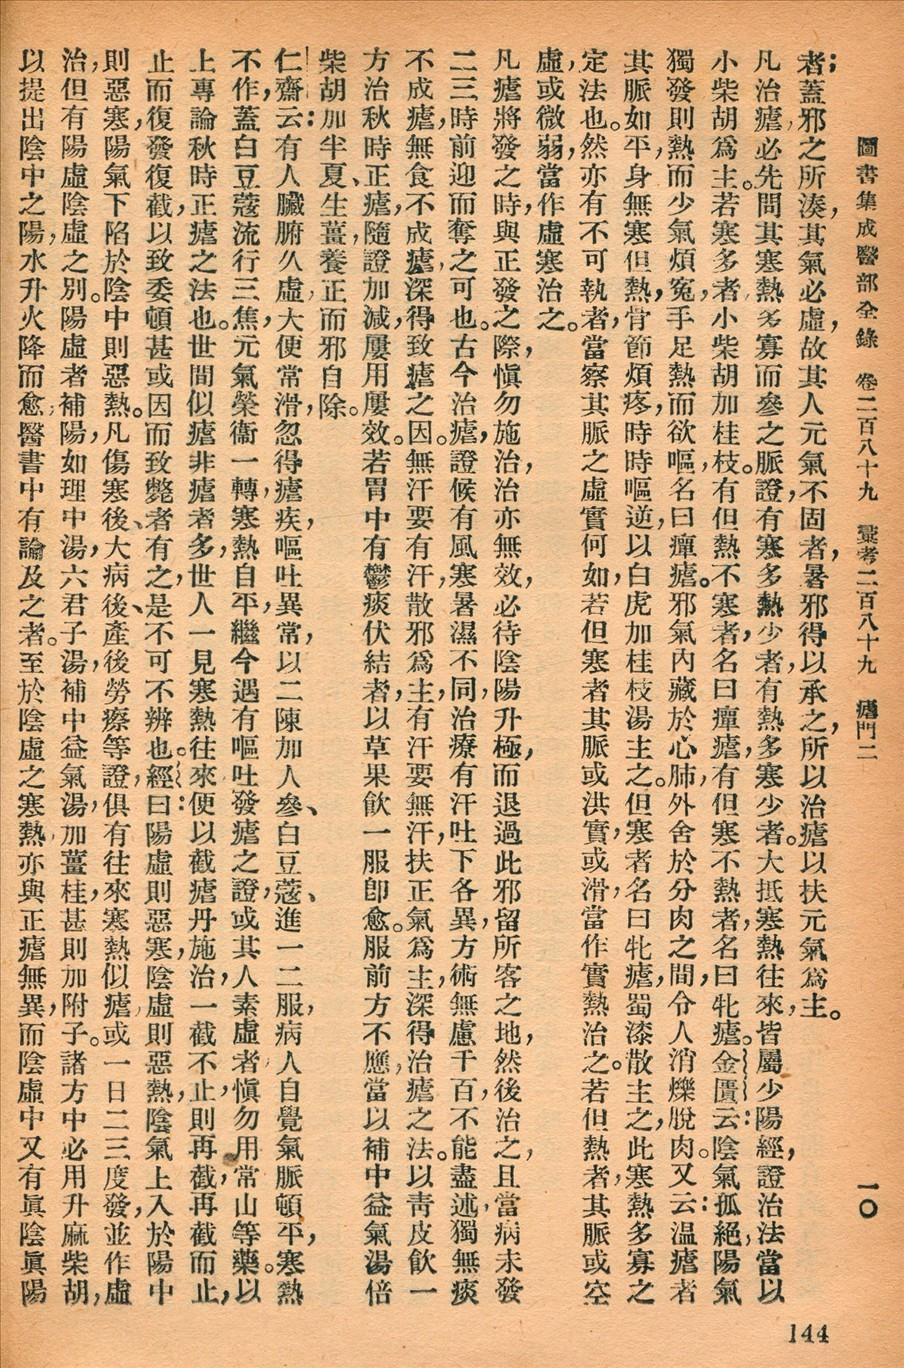 圖書集成醫部全錄　卷二百八十九　彙考二百八十九　瘧門二　一〇
者；蓋邪之所湊，其氣必虛，故其人元氣不固者，暑邪得以承之，所以治瘧以扶元氣爲主。
凡治瘧，必先問其寒熱多寡而參之。脈證，有寒多熱少者，有熱多寒少者。大抵寒熱往來，皆屬少陽經，證治法當以
小柴胡爲主。若寒多者，小柴胡加桂枝。有但熱不寒者，名曰癉瘧，有但寒不熱者，名曰牝瘧。金匱云：陰氣孤絕，陽氣
獨發，則熱而少氣煩寃，手足熱而欲嘔，名曰癉瘧。邪氣內藏於心肺，外舍於分肉之間，令人消爍脫肉。又云：温瘧者
其脈如平，身無寒但熱，骨節煩疼，時時嘔逆，以白虎加桂枝湯主之。但寒者名曰牝瘧，蜀漆散主之，此寒熱多寡之
定法也。然亦有不可執者，當察其脈之虛實何如，若但寒者，其脈或洪實，或滑，當作實熱治之。若但熱者，其脈或空
虛，或微弱，當作虛寒治之。
凡瘧將發之時，與正發之際，愼勿施治，治亦無效，必待陰陽升極，而退過此邪留所客之地，然後治之，且當病未發
二三時前，迎而奪之可也。古今治瘧，證候有風寒暑濕不同，治療有汗吐下各異，方術無慮千百，不能盡述，獨無痰
不成瘧，無食不成瘧，深得致瘧之因。無汗要有汗，散邪爲主，有汗要無汗，扶正氣爲主，深得治瘧之法。以靑皮飮一
方治秋時正瘧，隨證加減，屢用屢效。若胃中有鬱痰伏結者，以草果飮一服卽愈。服前方不應，當以補中益氣湯倍
柴胡加半夏、生薑，養正而邪自除。
仁齋云：有人臟腑久虛，大便常滑，忽得瘧疾，嘔吐異常，以二陳加人參、白豆蔻、進一二服，病人自覺氣脈頓平，寒熱
不作，蓋白豆蔻流行三焦，元氣榮衞一轉，寒熱自平，繼今遇有嘔吐發瘧之證，或其人素虛者，愼勿用常山等藥。以
上專論秋時正瘧之法也。世間似瘧非瘧者多，世人一見寒熱往來，便以截瘧丹施治，一截不止，則再截，再截而止，
止而復發，復截，以致委頓甚，或因而致斃者有之，是不可不辨也。經曰：陽虛則惡寒，陰虛則惡熱，陰氣上入於陽中
則惡寒，陽氣下陷於陰中則惡熱。凡傷寒後、大病後、產後勞瘵等證，俱有往來寒熱似瘧，或一日二三度發，並作虛
治，但有陽虛陰虛之別。陽虛者補陽，如理中湯，六君子湯，補中益氣湯，加薑桂，甚則加附子。諸方中必用升麻柴胡，
以提出陰中之陽，水升火降而愈，醫書中有論及之者。至於陰虛之寒熱，亦與正瘧無異，而陰虛中又有眞陰眞陽
144